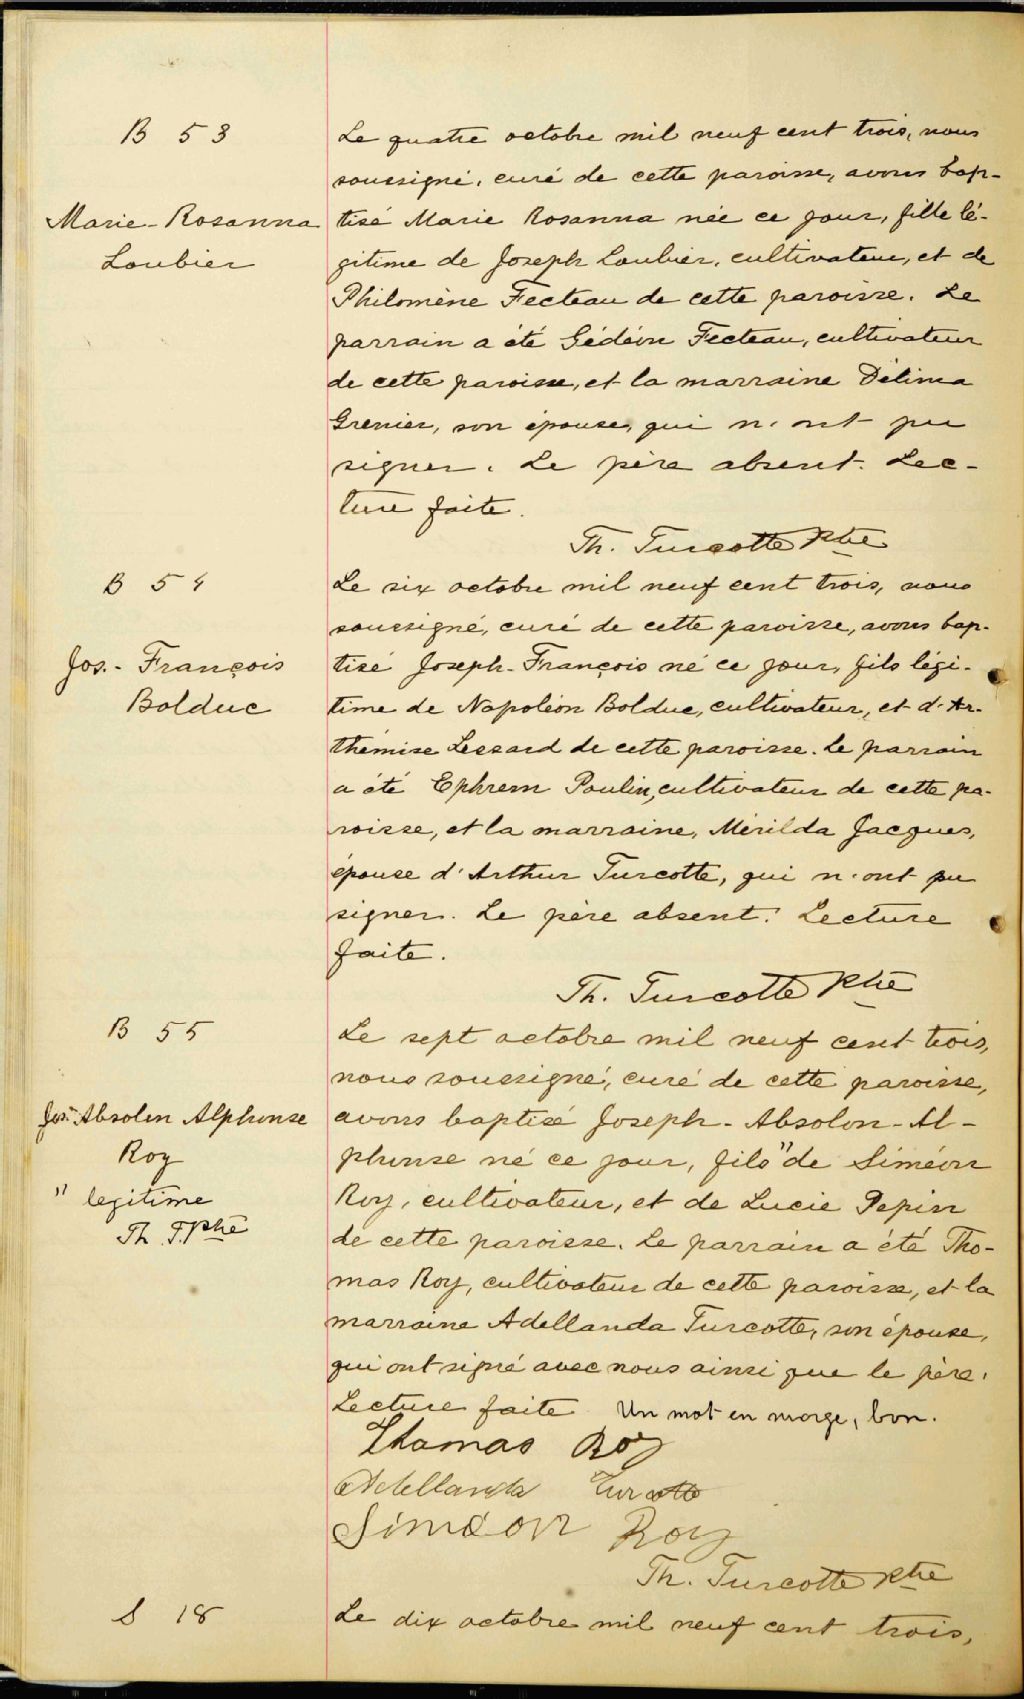 B 53
Marie-Rosanna
Loubier
Le quatre octobre mil neuf cent trois, nous
soussigné, curé de cette paroisse, avons bap-
tisé Marie Rosanna née ce jour, fille lé-
gitime de Joseph Loubier, cultivateur, et de
Philomène Fecteau de cette paroisse. Le
parrain a été Gédéon Fecteau, cultivateur
de cette paroisse, et la marraine Délima
Grenier, son épouse, qui n'ont pu
signer. Le père absent. Lec-
ture faite.
Th. Turcotte Ptre
B 54
Jos.- François
Bolduc
Le six octobre mil neuf cent trois, nous
soussigné, curé de cette paroisse, avons bap-
tisé Joseph-François né ce jour, fils légi-
time de Napoléon Bolduc, cultivateur, et d'Ar-
thémise Lessard de cette paroisse. Le parrain
a été Ephrem Poulin, cultivateur de cette pa-
roisse, et la marraine, Mérilda Jacques,
épouse d'Arthur Turcotte, qui n'ont pu
signer. Le père absent. Lecture
faite.
Th. Turcotte Ptre
B 55
Jos. Absolon Alphonse
Roy
" legitime
Th. T. Ptre
Le sept octobre mil neuf cent trois,
nous soussigné, curé de cette paroisse,
avons baptisé Joseph-Absolon-Al-
phonse né ce jour, fils " de Siméon
Roy, cultivateur, et de Lucie Pepin
de cette paroisse. Le parrain a été Tho-
mas Roy, cultivateur de cette paroisse, et la
marraine Adellanda Turcotte, son épouse,
qui ont signé avec nous ainsi que le père.
Lecture faite Un mot en marge, bon.
Thomas Roy
Adellanda Turcotte
Siméon Roy
Th. Turcotte Ptre
S 18
Le dix octobre mil neuf cent trois,